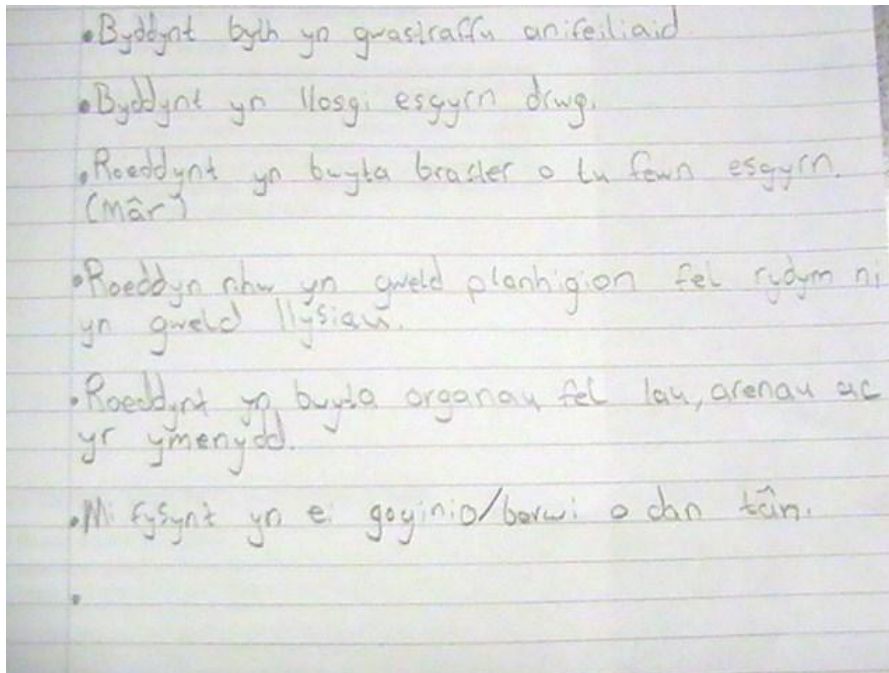 • Byddynt byth yn gwastraffu anifeiliaid
• Byddynt yn llosgi esgyrn drwg.
• Roeddynt yn bwyta braster o tu fewn esgyrn.
(mâr)
• Roeddyn nhw yn gweld planhigion fel rydym ni
yn gweld llysiau.
• Roeddynt yn bwyta organau fel Iau, arenau ac
yr ymenydd.
• Mi fysynt yn ei goginio/berwi o dan tân.
•